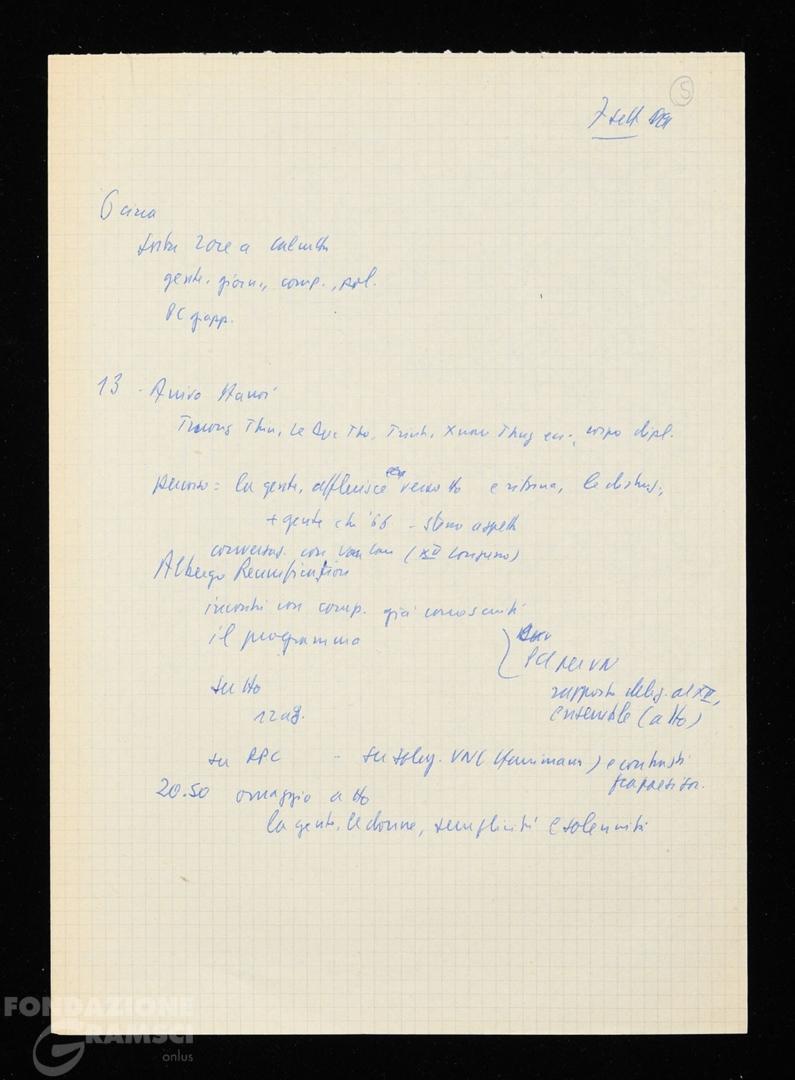 5
7 sett
6 circa
sosta 2 ore a Calcutta
gente, giorn., comp.,
PC giapp.
13 - Arrivo Hanoi
Truong Chin, Le Duc Tho, Trinh, Xuan Thuy ecc., corpo dipl.
percorso = la gente, affluisce verso Ho e ritorna, le distruz.,
+ gente che '66 - stesso aspetto
conversaz. con (XII Congresso)
Albergo Reunification
incontri con comp. già conosciuti
il programma
PCI per VN
rapporto deleg. al XII,
ensemble (a Ho)
su Ho
12 ag.
su RPC - su deleg. VN ( ) e contrasti
20.50 omaggio a Ho
la gente, le donne, semplicità e solennità
FONDAZIONE
GRAMSCI
onlus